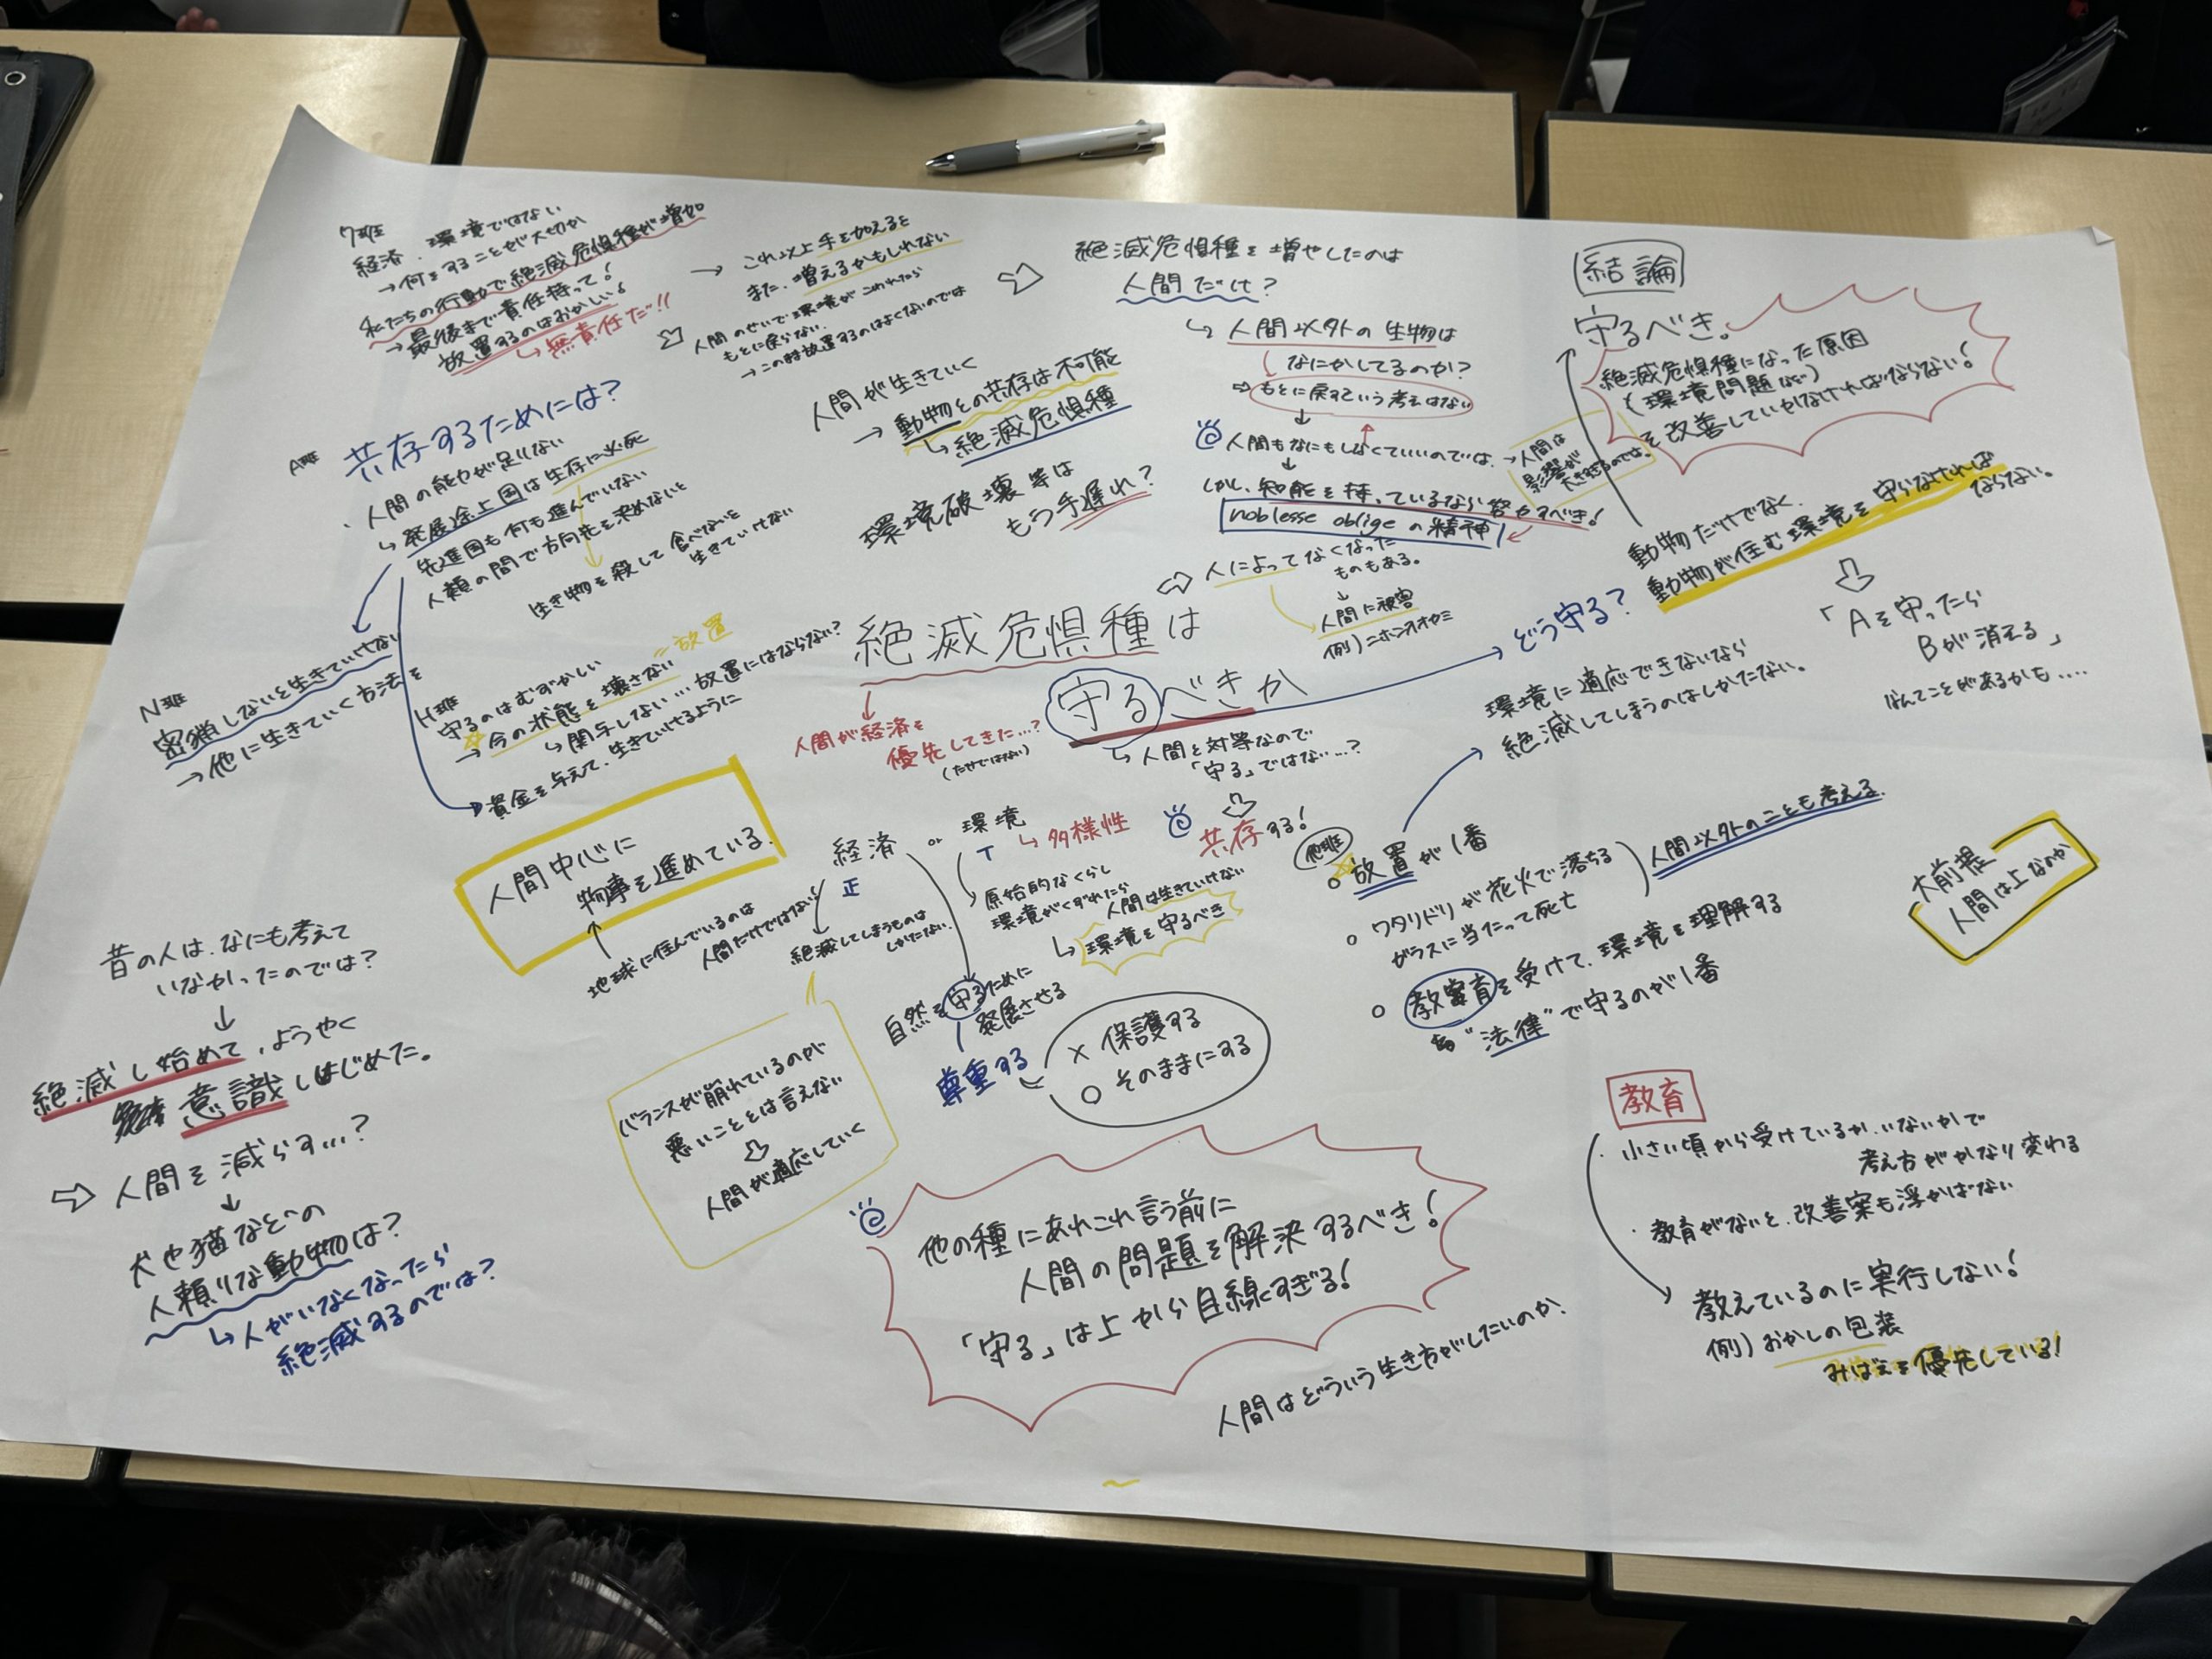 7班
経済、環境ではない
→何をすることが大切か
私たちの行動で絶滅危惧種が増加
→最後まで責任持って!
放置するのはおかしい!
↳無責任だ!!
→ これ以上手を加えると
また、増えるかもしれない
⇨ 人間のせいで環境がこわれたら
もとに戻らない。
→この時放置するのはよくないのでは
⇨ 絶滅危惧種を増やしたのは
人間だけ?
↳ 人間以外の生物は
なにかしてるのか?
⇨ もとに戻すという考えはない
↓
人間もなにもしなくていいのでは。
→人間は
影響が
大き過ぎるのでは。
↓
しかし、知能を持っているなら努力すべき!
noblesse obligeの精神
結論
守るべき。
絶滅危惧種になった原因
(環境問題など)
を改善していかなければならない!
動物だけでなく、
動物が住む環境を守らなければ
ならない。
⇩
「Aを守ったら
Bが消える」
なんてことがあるかも....
A班
共存するためには?
・人間の能力が足りない
↳発展途上国は生存に必死
先進国も何も進んでいない
人類の間で方向先を決めないと
生き物を殺して食べないと
生きていけない
人間が生きていく
→動物との共存は不可能
↳絶滅危惧種
環境破壊等は
もう手遅れ?
⇨ 人によってなくなった
ものもある。
↓
人間に被害
例)ニホンオオカミ
N班
密猟しないと生きていけない
→他に生きていく方法を
H班
守るのはむずかしい
→今の状態を壊さない
=放置
↳関与しない…放置にはならない?
資金を与えて、生きていけるように
絶滅危惧種は
守るべきか
人間が経済を
優先してきた…?
(だけではない)
↳人間と対等なので
「守る」ではない…?
⇩
共存する!
どう守る?
環境に適応できないなら
絶滅してしまうのはしかたない。
人間中心に
物事を進めている。
↑
地球に住んでいるのは
人間だけではない!
経済 or 環境
正
↳多様性
絶滅してしまうものは
しかたない。
原始的なくらし
環境がくずれたら
人間は生きていけない
↳環境を守るべき
自然を守るために
発展させる
尊重する
× 保護する
○ そのままにする
他班
○ 放置が1番
○ ワタリドリが花火で落ちる
ガラスに当たって死亡
人間以外のことも考える。
○ 教育を受けて、環境を理解する
"法律"で守るのが1番
大前提
人間は上なのか
昔の人は、なにも考えて
いなかったのでは?
↓
絶滅し始めて、ようやく
意識しはじめた。
⇨ 人間を減らす…?
↓
犬や猫などの
人頼りな動物は?
↳人がいなくなったら
絶滅するのでは?
バランスが崩れているのが
悪いこととは言えない
⇩
人間が適応していく
他の種にあれこれ言う前に
人間の問題を解決するべき!
「守る」は上から目線すぎる!
人間はどういう生き方がしたいのか。
教育
・小さい頃から受けているか、いないかで
考え方がかなり変わる
・教育がないと、改善案も浮かばない
教えているのに実行しない!
例)おかしの包装
みばえを優先している!